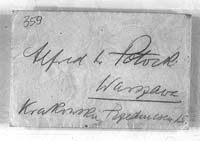 359
Alfred hr. Potocki
Warszawa
Krakowskie Przedmieście 15.